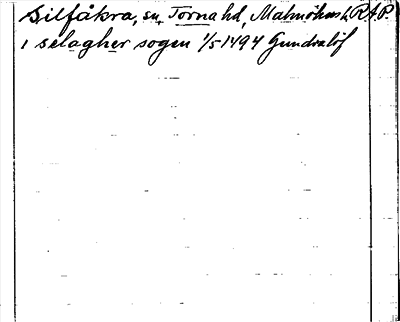 Silfåkra, sn, Torna hd, Malmöhus l, RAP.
i selagher sogen 1/5 1494 Gundralöf